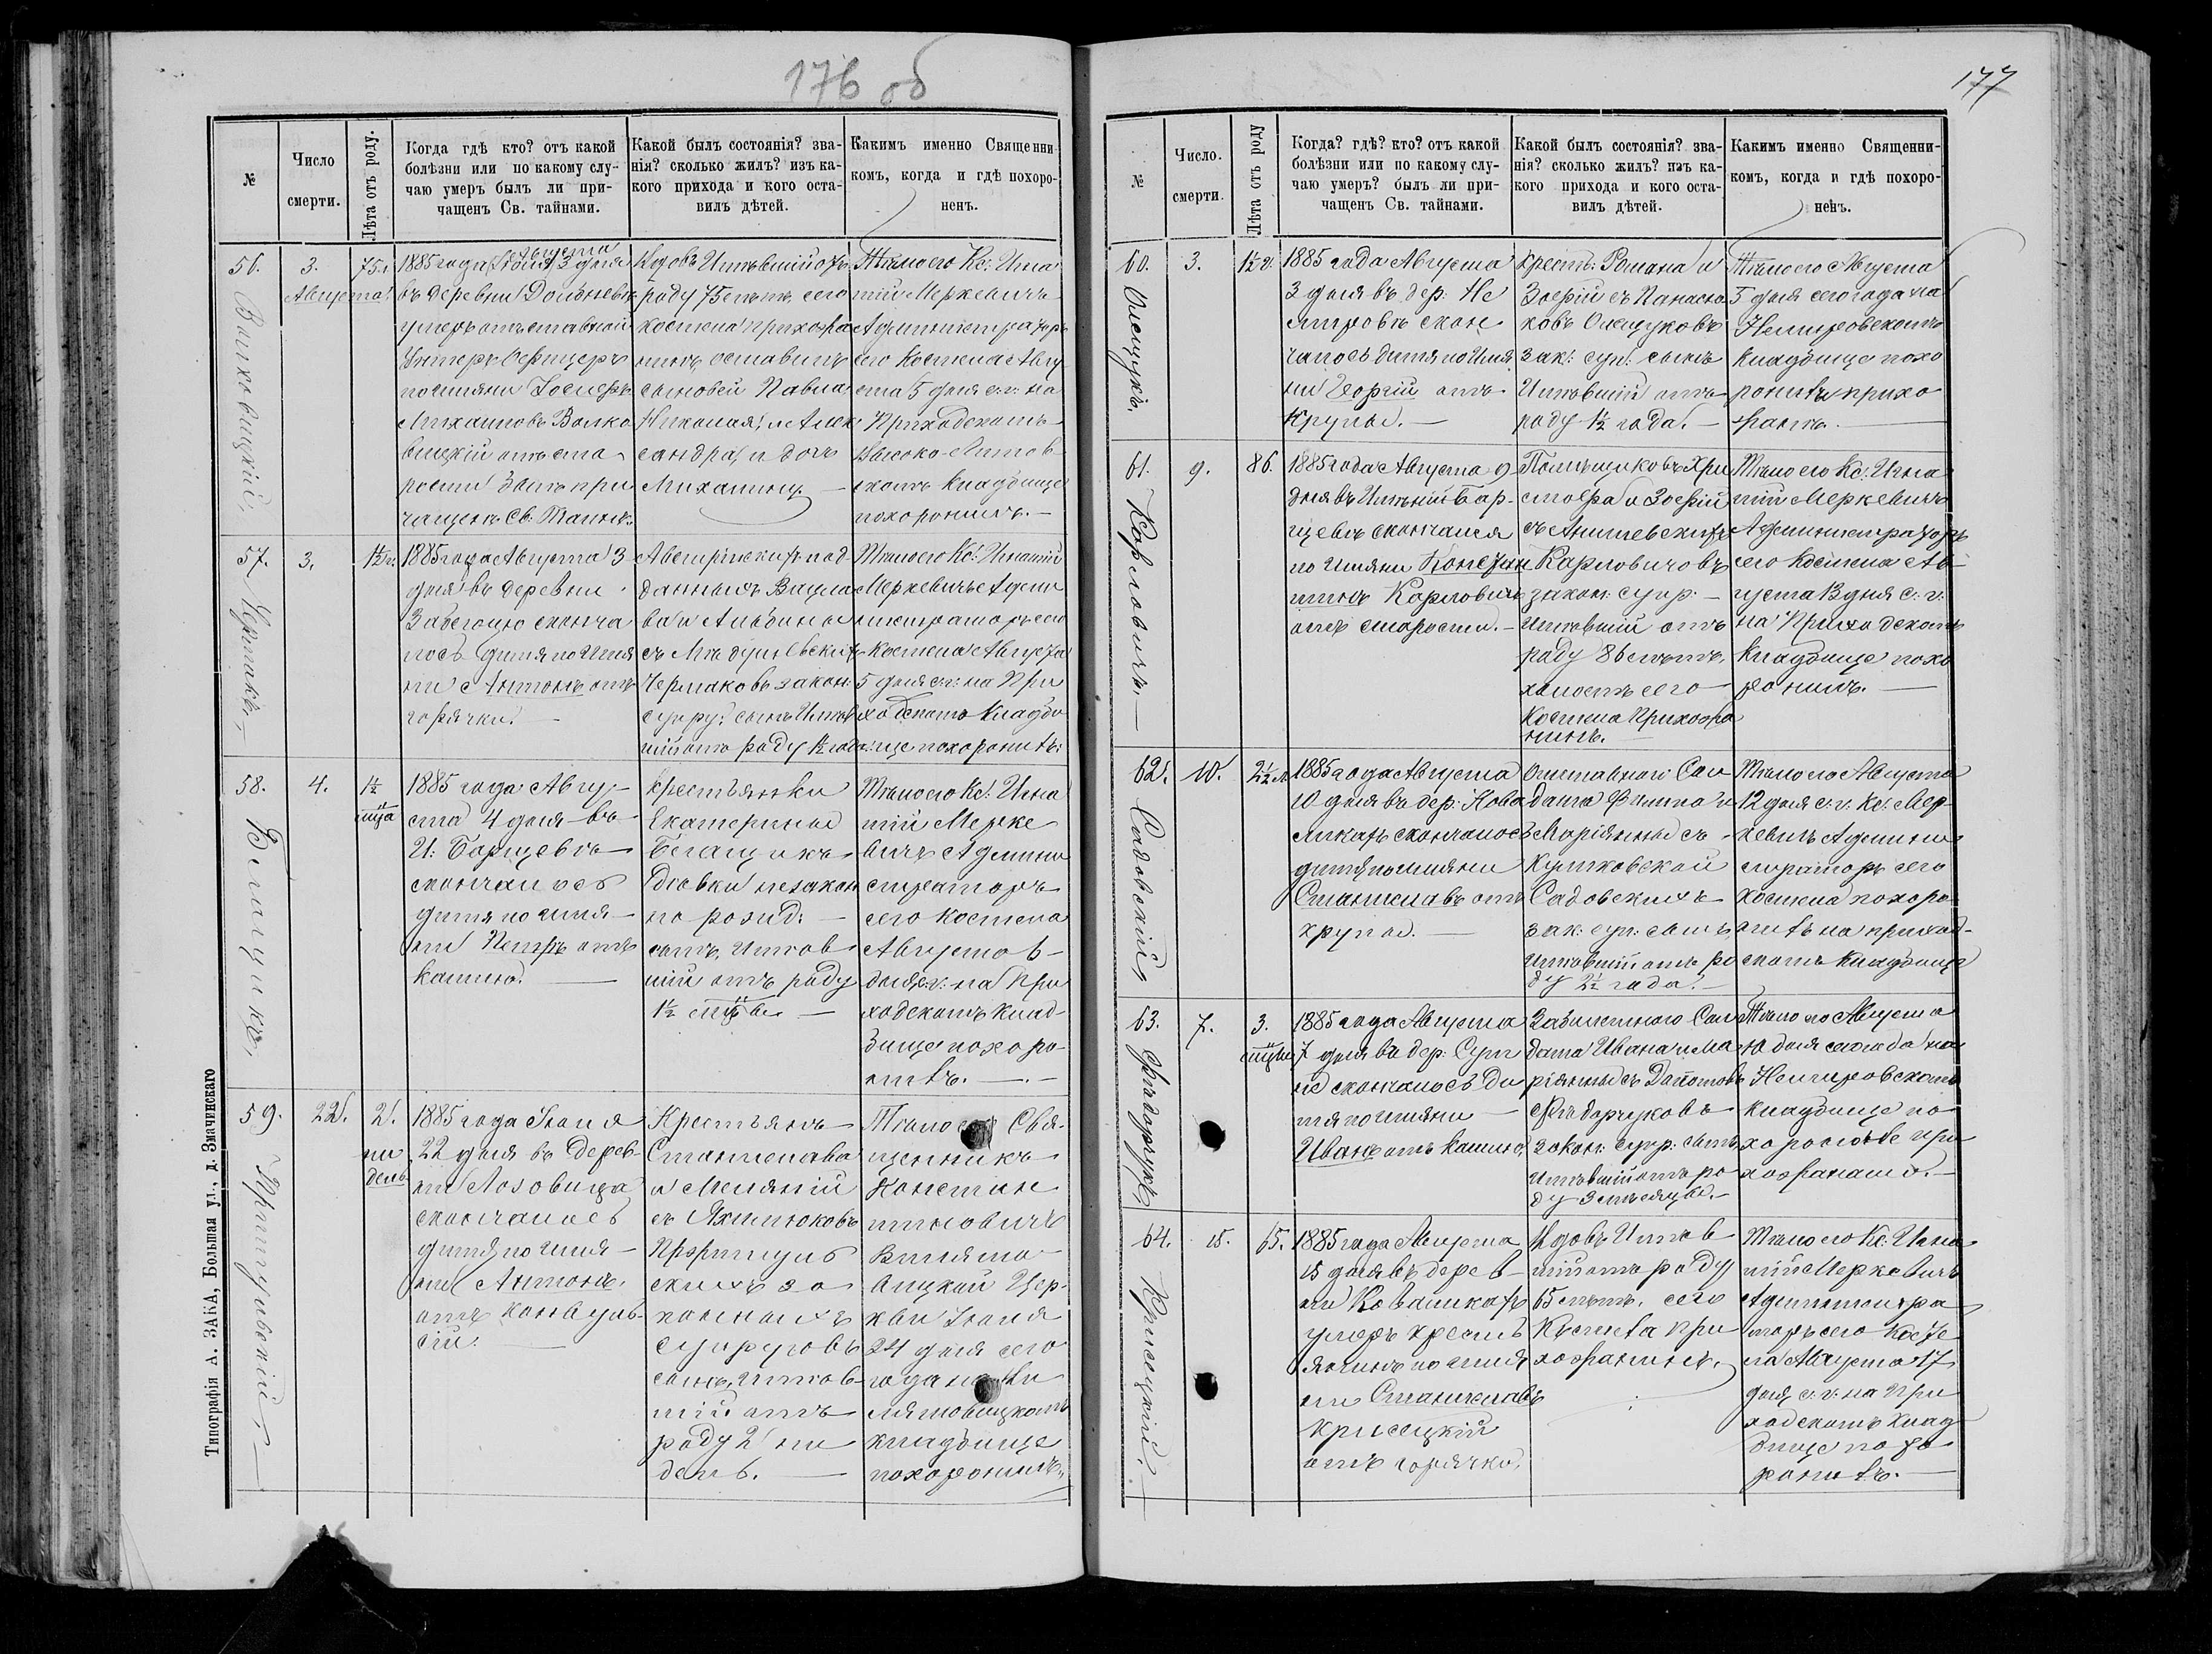 176 об
№
Число
смерти.
Лѣта отъ роду.
Когда гдѣ кто? отъ какой
болѣзни или по какому слу-
чаю умеръ былъ ли при-
чащенъ Св. тайнами.
Какой былъ состоянія? зва-
нія? сколько жилъ? изъ ка-
кого прихода и кого оста-
вилъ дѣтей.
Какимъ именно Священни-
комъ, когда и гдѣ похоро-
ненъ.
56.
3.
Августа
75 л.
Августа
1885 года Іюля 3 дня
въ деревни
умеръ отъставной
Унтеръ Офицеръ
по имяни Іосифъ
Михаиловъ Валко
вицкій отъ ста
рости бывъ при
чащенъ Св. Таинъ.
Вдовъ Имѣвшій отъ
роду 75 лѣтъ, сего
костела прихожа
нинъ, оставилъ
сыновей Павла,
Николая, и Алек
сандра, и дочь
Михалину. —
Тѣло его Кс: Игна
тій Меркевичъ
Администраторъ
сего Костела Авгу
ста 5 дня с. г. на
Приходскомъ
Высоко-Литов
скомъ кладбище
похоронилъ. —
57.
Чермакъ. —
3.
1½ г.
1885 года Августа 3
дня въ деревни
сконча
лось дитя по имя
ни Антонъ отъ
горячки. —
Австрійскихъ под
данныхъ Вацла
ва и Альбины
съ
Чермаковъ закон:
супру: сынъ Имѣв
шій отъ роду 1½ года.
Тѣло его Кс: Игнатій
Меркевичъ Адми
нистраторъ сего
костела Августа
5 дня с. г. на При
ходскомъ кладби
ще похоронилъ:
58.
4.
1½
мца
1885 года Авгу-
ста 4 дня въ
И: Борщевъ
скончалось
дитя по имя-
ни Петръ отъ
кашлю. —
Крестьянки
Екатерины
незакон
но рожд: —
сынъ, имѣв
шій отъ роду
1½ —
Тѣло его Кс: Игна
тій Мерке
вичъ Админи
страторъ
сего костела
Августа 6-
дня с. г. на При
ходскомъ клад-
бище похоро-
нилъ. —
59.
22.
2.
ни
дель
1885 года Іюля
22 дня въ дерев-
ни Лозовица
скончалось
дитя по имя-
ни Антонъ
отъ конвуль-
сій. —
Крестьянъ
Станислава
и Меляніи
съ
за
конныхъ
супруговъ
сынъ, имѣв-
шій отъ
роду 2 ни
дель. —
Тѣло его Свя-
щенникъ
Констан
тиновичъ
Цер-
кви Іюля
24 дня сего
года на
кладбище
похоронилъ.
Типографія А. ЗАКА, Большая ул., д. Значинскаго
177
№
Число.
смерти.
Лѣта отъ роду
Когда? гдѣ? кто? отъ какой
болѣзни или по какому слу-
чаю умеръ? былъ ли при-
чащенъ Св. тайнами.
Какой былъ состоянія? зва-
нія? сколько жилъ? изъ ка-
кого прихода и кого оста-
вилъ дѣтей.
Какимъ именно Священни-
комъ, когда и гдѣ похоро-
ненъ.
60.
3.
1½ г.
1885 года Августа
3 дня въ дер: Не
мировѣ скон
чалось дитя по Имя
ни Георгій отъ
крупы. —
Крест: Романа и
Зофіи съ Панасю
ковъ
зак: суп: сынъ
Имѣвшій отъ
роду 1½ года. —
Тѣло его Августа
5 дня сего года на
Немировскомъ
кладбище похо
ронилъ прихо
жанинъ. —
61.
Карловичъ. —
9.
86.
1885 года Августа 9
дня въ Имѣній Бор-
щевъ скончался
по Имяни Констан
тинъ Карловичъ
отъ старости. —
Помѣщиковъ Хри
стофа и Зофіи
съ
Карловичовъ
закон: супр: —
имѣвшій отъ
роду 86 лѣтъ,
холостъ сего
Костела Прихожа
нинъ.
Тѣло его Кс: Игна
тій Меркевичъ
Администраторъ
сего Костела Ав-
густа 13 дня с: г:
на Приходскомъ
кладбище похо
ронилъ. —
62.
Садовскій,
10.
2½ л.
1885 года Августа
10 дня въ дер: Нова
скончалось
дитя по имяни
Станиславъ отъ
крупы. —
Отставного Сол
дата Филипа и
Маріянны съ
Садовскихъ
зак: суп: сынъ
имѣвшій отъ ро
ду 2½ года. —
Тѣло его Августа
12 дня с. г. Кс: Мер-
кевичъ Админи
страторъ сего
Костела похоро-
нилъ на приход-
скомъ кладбище
63.
Ѳедорчукъ
7.
3.
мцы
1885 года Августа
7 дня въ дер:
скончалось ди
тя по имяни —
Иванъ отъ кашлю,
Солдата Ивана и Ма
ріянны съ
Ѳедорчуковъ
закон: супр: сынъ
имѣвшій отъ ро
ду 3 мѣсяцы. —
Тѣло его Августа
10 дня сего года на
Немировскомъ
кладбище по
хоронено при
хожанами. —
64.
Крисецкій. —
15.
65.
1885 года Августа
15 дня въ дерев-
ни
умеръ кресть
янинъ по имя
ни Станиславъ
Крисецкій
отъ горячки.
Вдовъ Имѣв
шій отъ роду
65 лѣтъ, сего
Костела При
хожанинъ.
Тѣло его Кс: Игна
тій Меркевичъ
Администра
торъ сего Косте
ла Августа 17
дня с. г. на При
ходскомъ Клад
бище похо
ронилъ. —